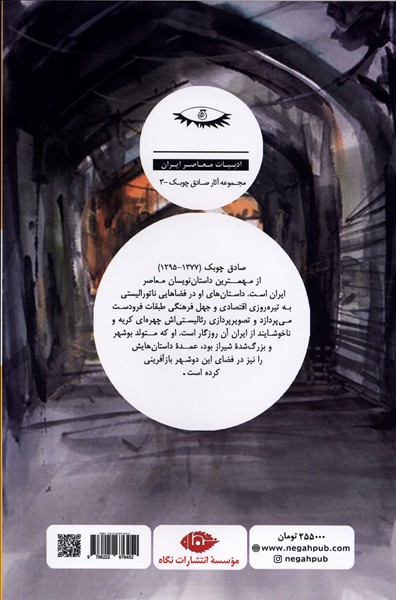 ادبیات معاصر ایران
مجموعه آثار صادق چوبک -۳
صادق چوبک (۱۳۷۷-۱۲۹۵)
از مهمترین داستان‌نویسان معاصر
ایران است. داستان‌های او در فضاهایی ناتورالیستی
به تیره‌روزی اقتصادی و جهل فرهنگی طبقات فرودست
می‌پردازد و تصویرپردازی رئالیستی‌اش چهره‌ای کریه و
ناخوشایند از ایران آن روزگار است. او که متولد بوشهر
و بزرگ‌شدهٔ شیراز بود، عمدهٔ داستان‌هایش
را نیز در فضای این دوشهر بازآفرینی
کرده است.
9 786222 676452
مؤسسهٔ انتشارات نگاه
۲۵۵۰۰۰ تومان
www.negahpub.com
negahpub